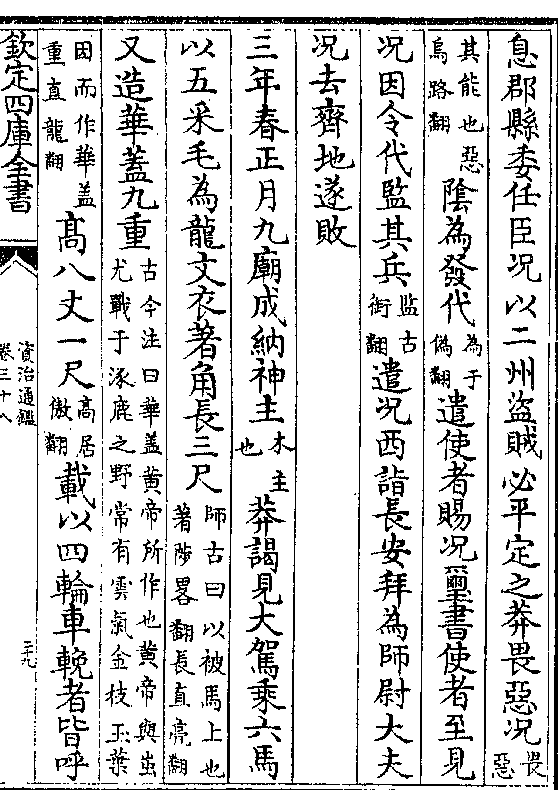 息郡縣委任臣况以二州盜賊必平定之莽畏惡况畏惡
其能也惡烏路翻陰為發代為于偽翻遣使者賜况璽書使者至見
况因令代監其兵監古銜翻遣况西詣長安拜為師尉大夫
况去齊地遂敗
三年春正月九廟成納神主木主也莽謁見大駕乘六馬
以五采毛為龍文衣著角長三尺師古曰以被馬上也著陟畧翻長直亮翻
又造華蓋九重古今注曰華蓋黄帝所作也黄帝與蚩尤戰于涿鹿之野常有雲氣金枝玉葉
因而作華蓋重直龍翻髙八丈一尺高居傲翻載以四輪車輓者皆呼
欽定四庫全書
資治通鑑
卷三十八
三九